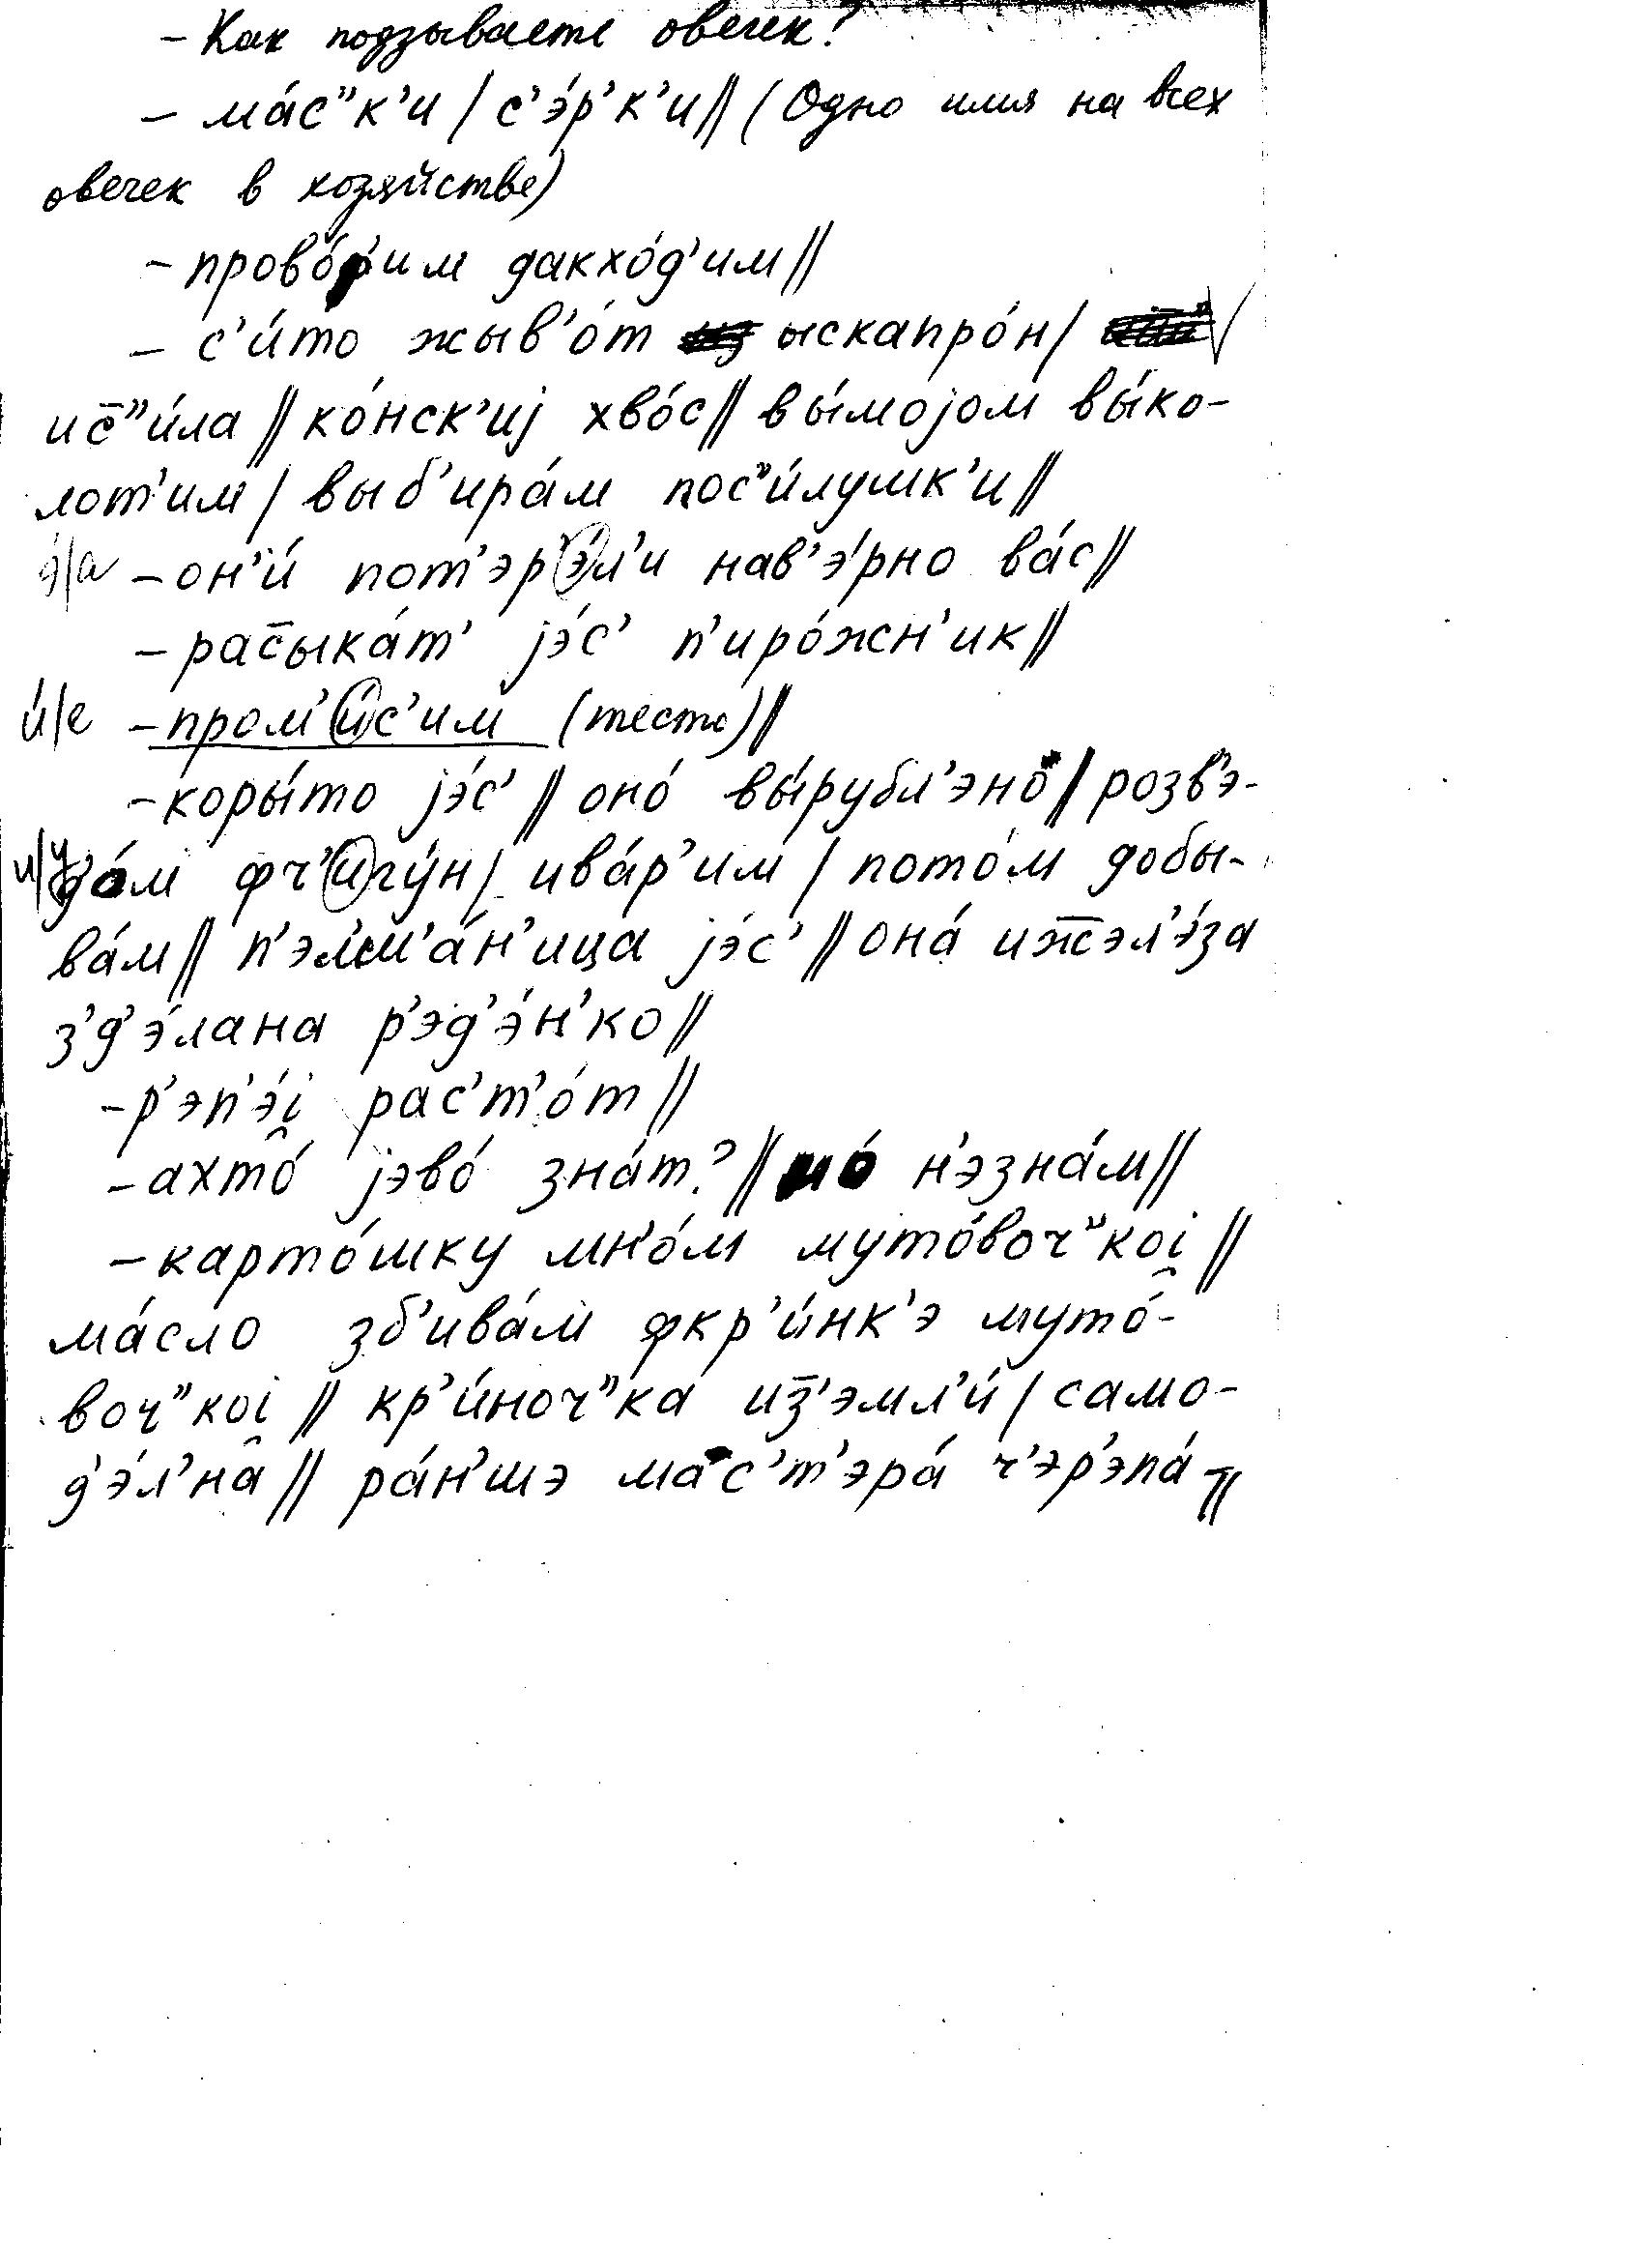 – Как подзываете овечек?
– ма́с”к’и / с’э́р’к’и // (Одно имя на всех
овечек в хозяйстве)
– прово́р’им дакхо́д’им //
– с’и́то жыв’о́т ыскапро́н /
ис̄”и́ла // ко́нск’иј хво́с // вы́мојом вы́ко-
лот’им / выб’ира́м пос”и́лушк’и //
э́/а – он’и́ пот’эр’э́л’и нав’э́рно ва́с //
– рас̄ыка́т’ јэ́с’ п’иро́жн’ик //
и́/е – пром’и́с’им (тесто) //
– коры́то јэ́с’ // оно́ вы́рубл’эно // розв’э-
и/у до́м фч’игу́н / ива́р’им / пото́м добы-
ва́м // п’эл’м’а́н’ица јэ́с’ // она́ иж̄эл’э́за
з’д’э́лана р’эд’э́н’ко //
– р’эп’э́i̯ рас’т’о́т //
– ахто́ јэво́ зна́т? // н’эзна́м //
– карто́шку мн’о́м муто́воч”коi̯ //
ма́сло зб’ива́м фкр’и́нк’э муто́-
воч”коi̯ // кр’и́ноч”ка из̄’эмл’и́ / само-
д’э́л’на // ра́н’шэ мас’т’эра́ ч’эр’эпа́ //